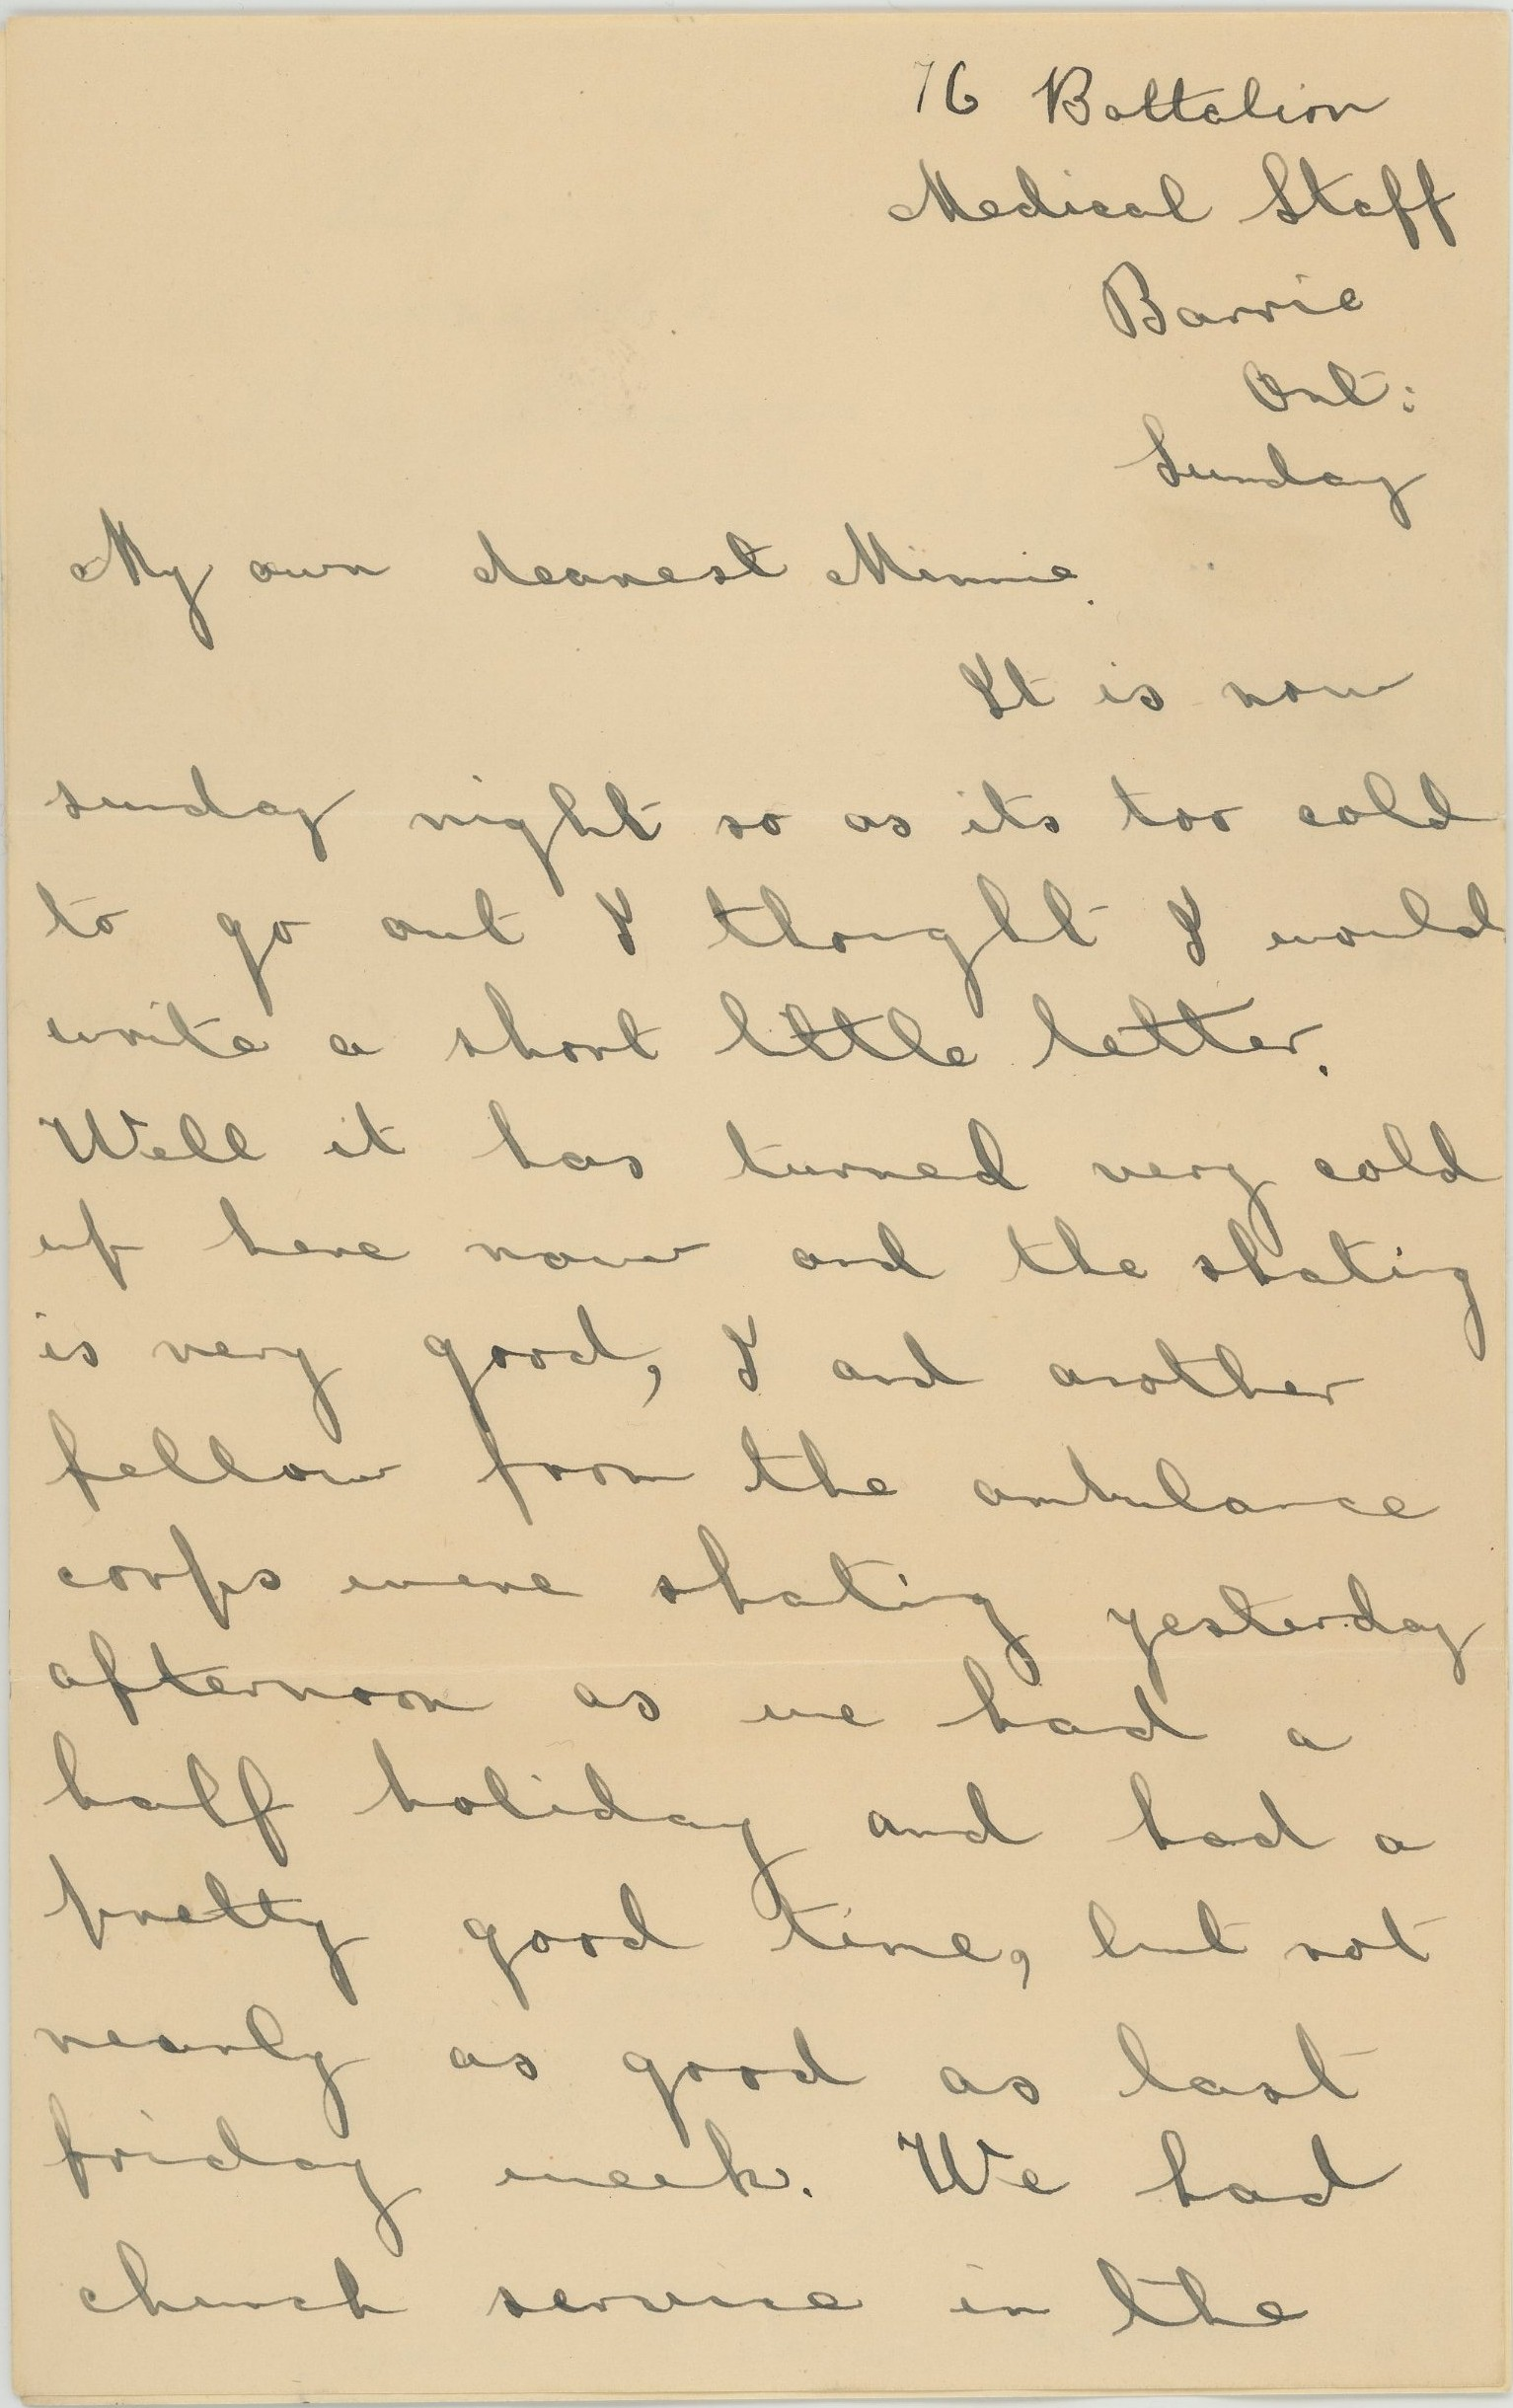 76 Battalion
Medical Staff
Barrie
Ont:
Sunday
My own dearest Minnie.
It is now
sunday night so as its too cold
to go out I thought I would
write a short little letter.
Well it has turned very cold
up here now and the skating
is very good, I and another
fellow from the ambulance
corps were skating yesterday
afternoon as we had a
half holiday and had a
pretty good time, but not
nearly as good as last
friday week. We had
church service in the